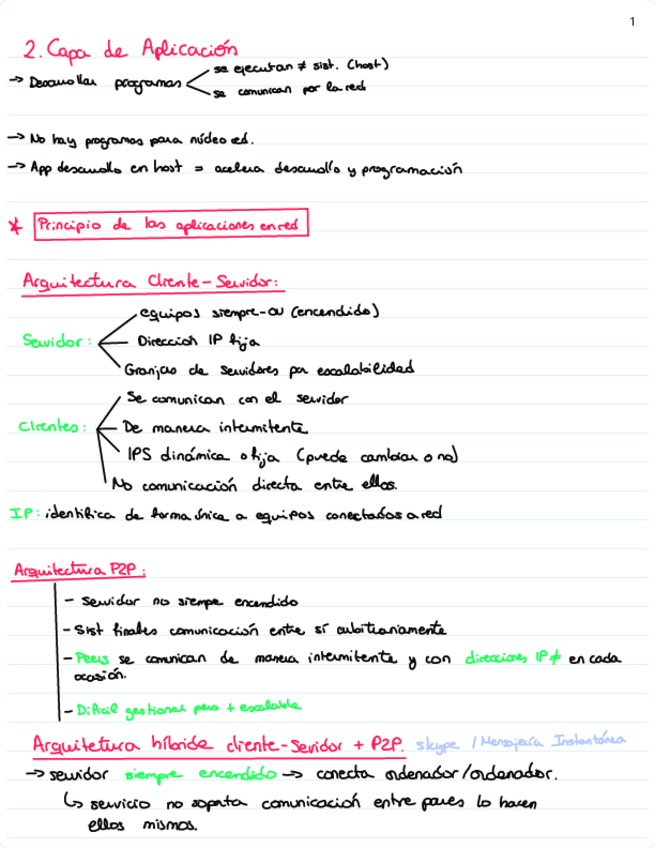 1
2. Capa de Aplicación
→ Desarrollar programas < se ejecutan ≠ sist. (host)
se comunican por la red
→ No hay programas para núcleo red.
→ App desarrollo en host = acelera desarrollo y programación
* Principio de las aplicaciones en red
Arquitectura Cliente-Servidor:
equipos siempre-on (encendido)
Servidor: Dirección IP fija
Granjas de servidores por escalabilidad
Se comunican con el servidor
Clientes: De manera intermitente
IPS dinámica o fija (puede cambiar o no)
No comunicación directa entre ellos.
IP: identifica de forma única a equipos conectados a red
Arquitectura P2P:
- Servidor no siempre encendido
- Sist finales comunicación entre sí arbitrariamente
- Peers se comunican de manera intermitente y con direcciones IP ≠ en cada
ocasión.
- Difícil gestionar pero + escalable
Arquitetura híbride cliente-Servidor + P2P. skype / Mensajería Instantánea
→ servidor siempre encendido → conecta ordenador/ordenador.
↳ servicio no soporta comunicación entre pares lo hacen
ellos mismos.